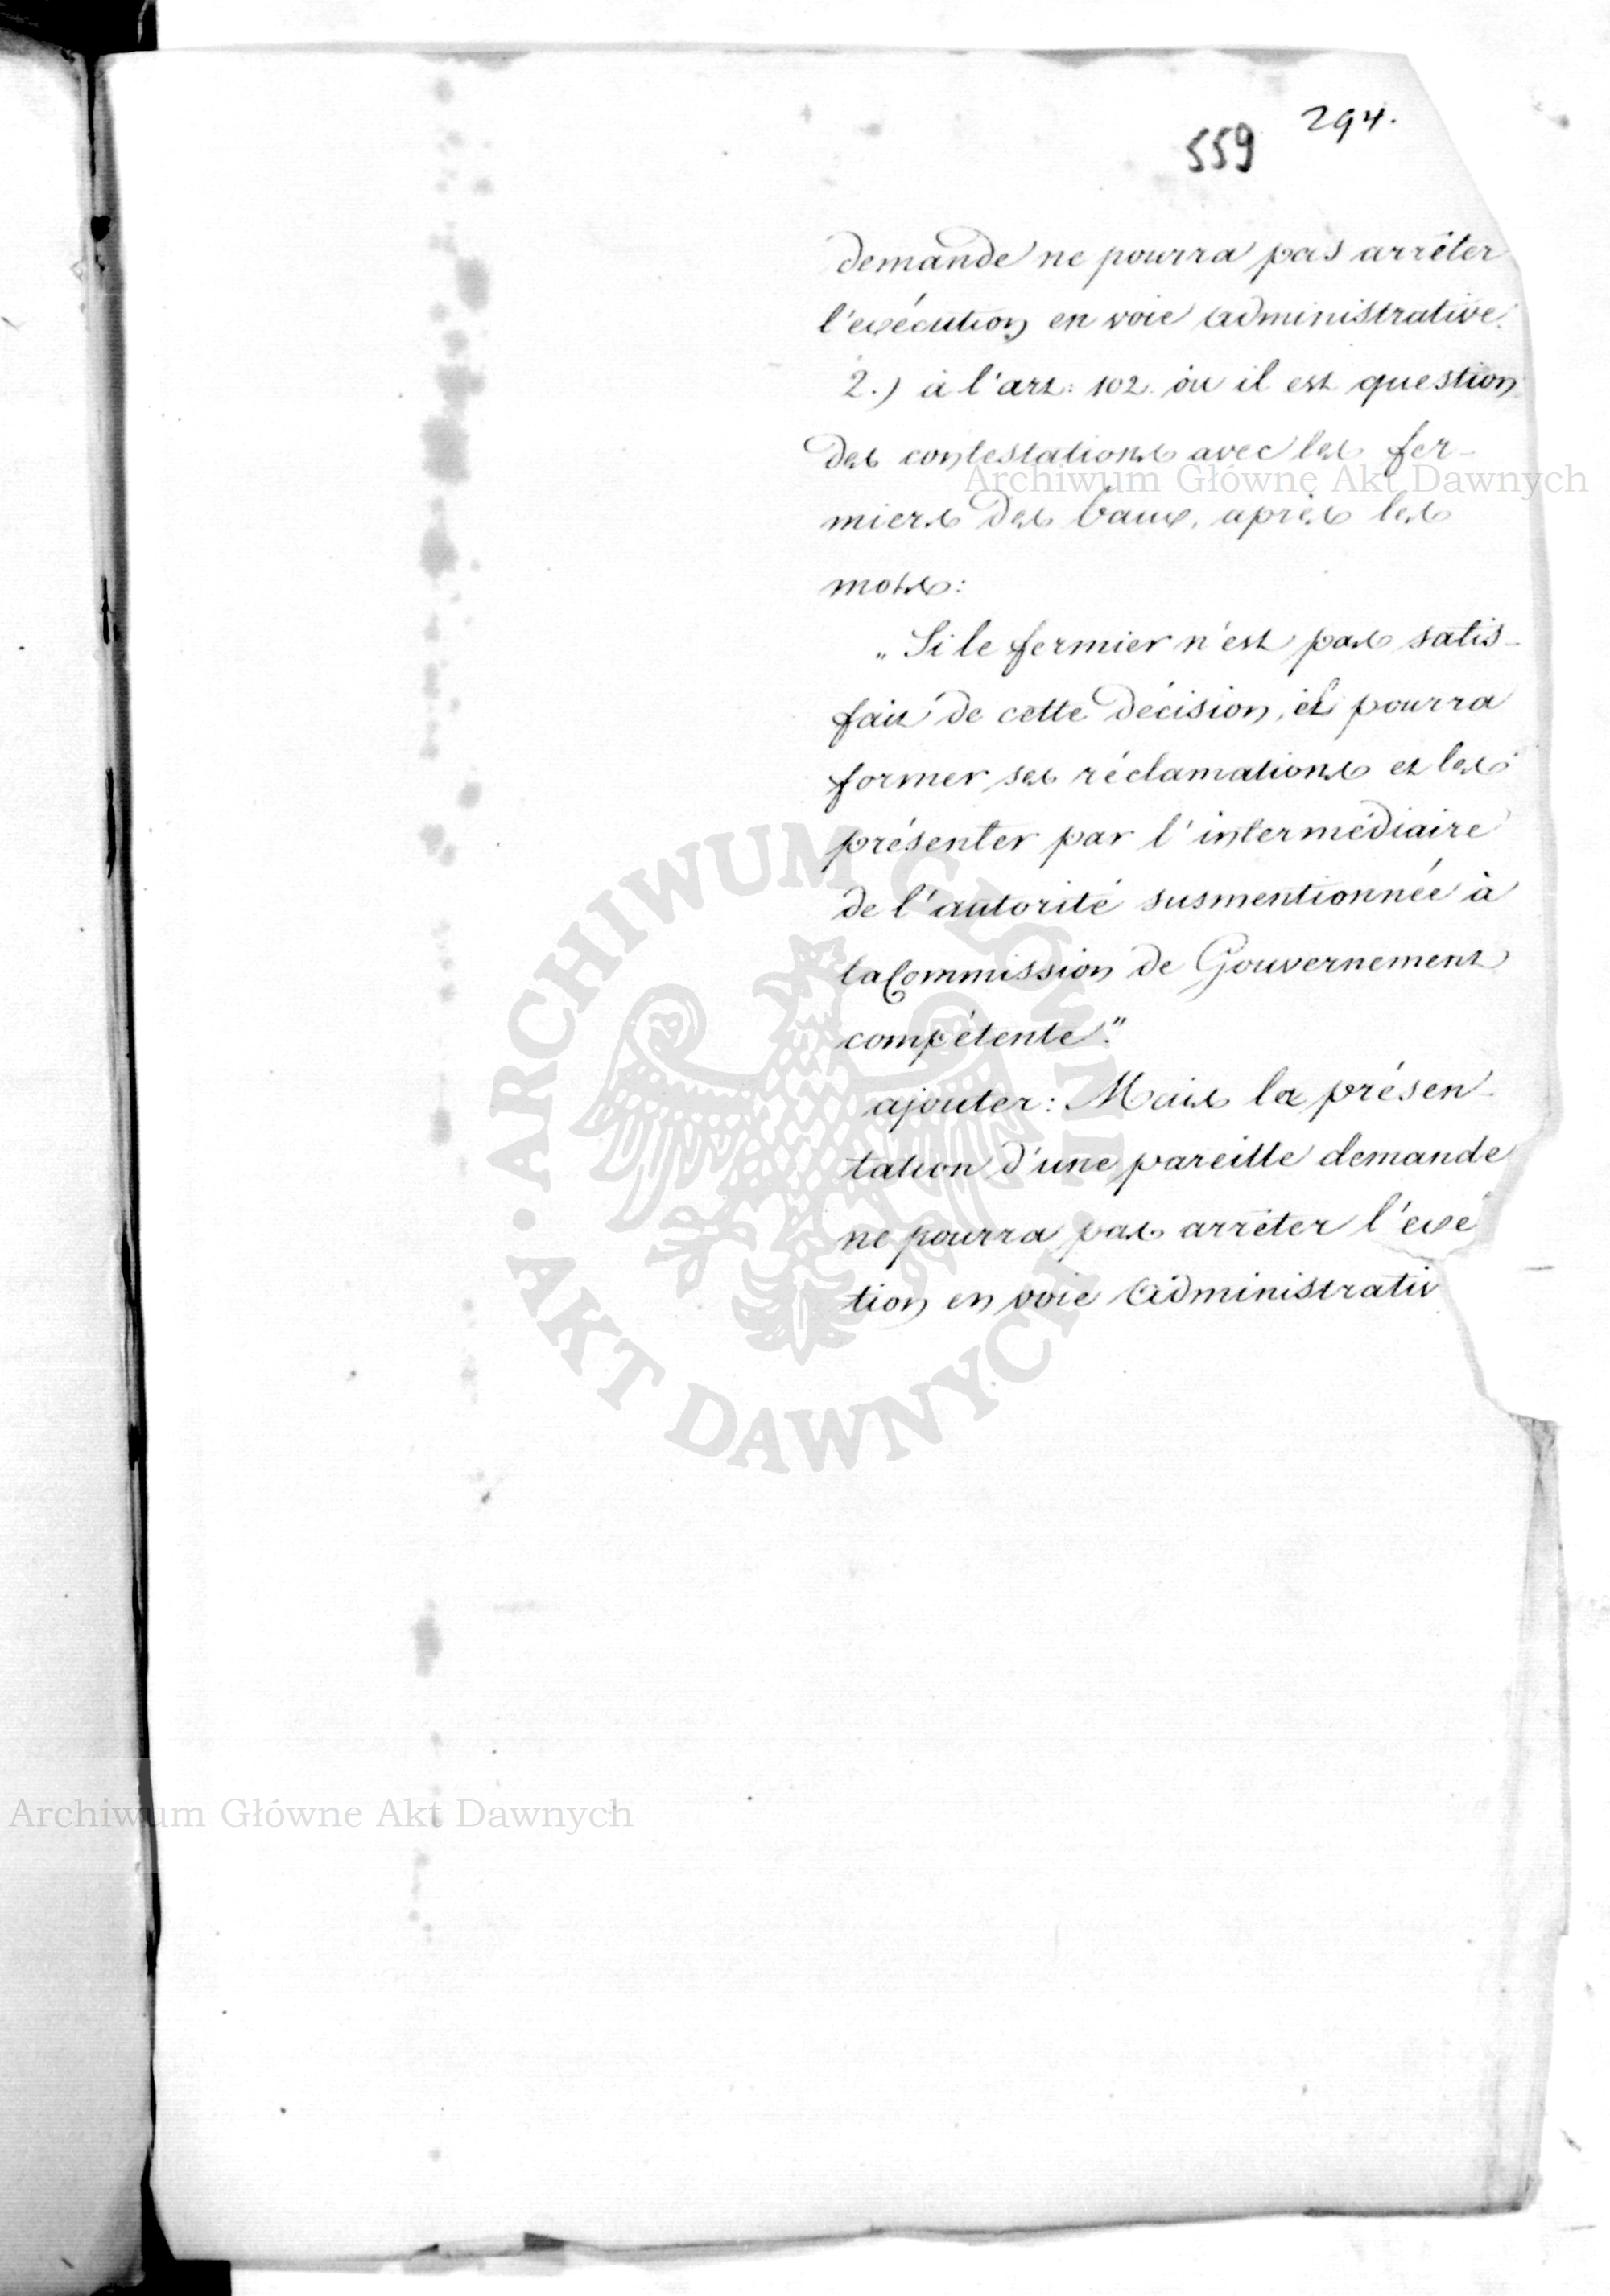 294.
559
demande ne pourra pas arrêter
l'exécution en voie administrative.
2.) à l'art: 102. où il est question
des contestations avec les fer-
Archiwum Główne Akt Dawnych
miers des baux, après les
mots:
„Si le fermier n'est pas satis-
fait de cette décision, il pourra
former ses réclamations et les
présenter par l'intermédiaire
de l'autorité susmentionnée à
la Commission de Gouvernement
compétente."
ajouter: Mais la présen-
tation d'une pareille demande
ne pourra pas arrêter l'exé
tion en voie administrativ
ARCHIWUM GŁÓWNE · AKT DAWNYCH ·
Archiwum Główne Akt Dawnych